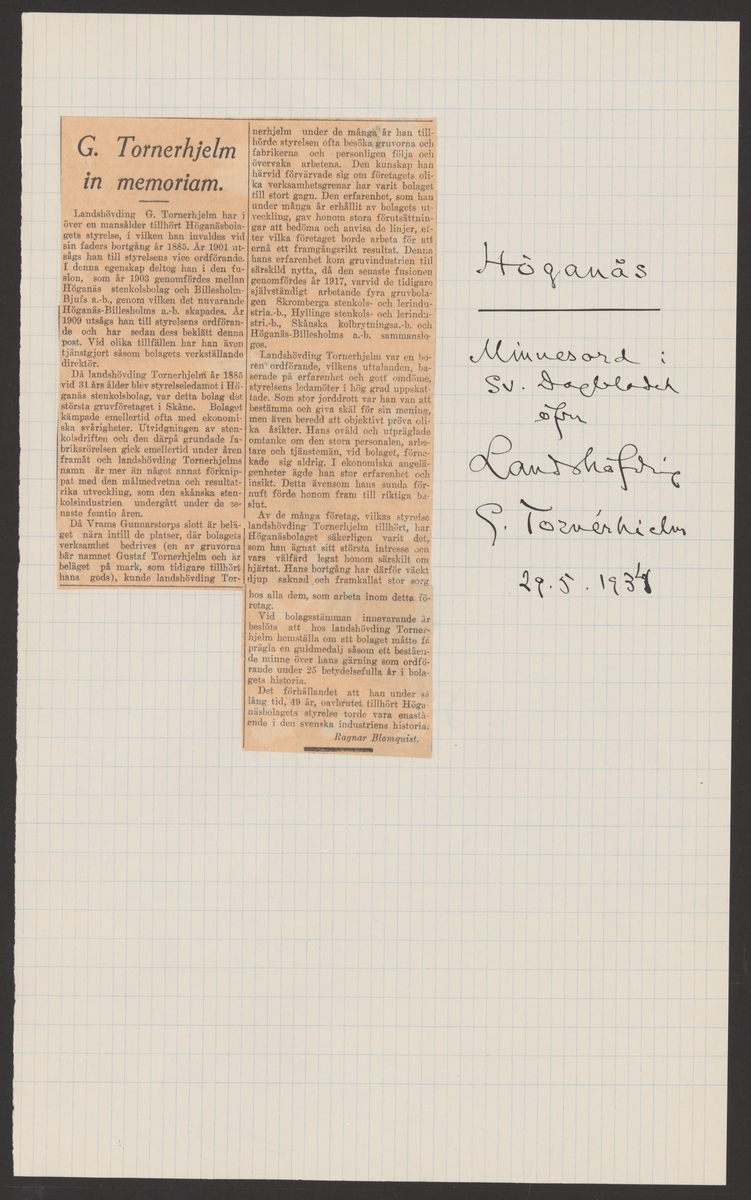 G. Tornerhjelm
in memoriam.
Landshövding G. Tornerhjelm har i
över en mansålder tillhört Höganäsbola-
gets styrelse, i vilken han invaldes vid
sin faders bortgång år 1885. År 1901 ut-
sågs han till styrelsens vice ordförande.
I denna egenskap deltog han i den fu-
sion, som år 1903 genomfördes mellan
Höganäs stenkolsbolag och Billesholm-
Bjufs a.-b., genom vilken det nuvarande
Höganäs-Billesholms a.-b. skapades. År
1909 utsågs han till styrelsens ordföran-
de och har sedan dess beklätt denna
post. Vid olika tillfällen har han även
tjänstgjort såsom bolagets verkställande
direktör.
Då landshövding Tornerhjelm år 1885
vid 31 års ålder blev styrelseledamot i Hö-
ganäs stenkolsbolag, var detta bolag det
största gruvföretaget i Skåne. Bolaget
kämpade emellertid ofta med ekonomi-
ska svårigheter. Utvidgningen av sten-
kolsdriften och den därpå grundade fa-
briksrörelsen gick emellertid under åren
framåt och landshövding Tornerhjelms
namn är mer än något annat förknip-
pat med den målmedvetna och resultat-
rika utveckling, som den skånska sten-
kolsindustrien undergått under de se-
naste femtio åren.
Då Vrams Gunnarstorps slott är belä-
get nära intill de platser, där bolagets
verksamhet bedrives (en av gruvorna
bär namnet Gustaf Tornerhjelm och är
beläget på mark, som tidigare tillhört
hans gods), kunde landshövding Tor-
nerhjelm under de många år han till-
hörde styrelsen ofta besöka gruvorna och
fabrikerna och personligen följa och
övervaka arbetena. Den kunskap han
härvid förvärvade sig om företagets oli-
ka verksamhetsgrenar har varit bolaget
till stort gagn. Den erfarenhet, som han
under många år erhållit av bolagets ut-
veckling, gav honom stora förutsättnin-
gar att bedöma och anvisa de linjer, ef-
ter vilka företaget borde arbeta för att
ernå ett framgångsrikt resultat. Denna
hans erfarenhet kom gruvindustrien till
särskild nytta, då den senaste fusionen
genomfördes år 1917, varvid de tidigare
självständigt arbetande fyra gruvbola-
gen Skromberga stenkols- och lerindu-
stria.-b., Hyllinge stenkols- och lerindu-
stri.-b., Skånska kolbrytningsa.-b. och
Höganäs-Billesholms a.-b. sammanslo-
gos.
Landshövding Tornerhjelm var en bo-
ren ordförande, vilkens uttalanden, ba-
serade på erfarenhet och gott omdöme,
styrelsens ledamöter i hög grad uppskat-
tade. Som stor jorddrott var han van att
bestämma och giva skäl för sin mening,
men även beredd att objektivt pröva oli-
ka åsikter. Hans oväld och utpräglade
omtanke om den stora personalen, arbe-
tare och tjänstemän, vid bolaget, förne-
kade sig aldrig. I ekonomiska angelä-
genheter ägde han stor erfarenhet och
insikt. Detta ävensom hans sunda för-
nuft förde honom fram till riktiga be-
slut.
Av de många företag, vilkas styrelse
landshövding Tornerhjelm tillhört, har
Höganäsbolaget säkerligen varit det,
som han ägnat sitt största intresse och
vars välfärd legat honom särskilt om
hjärtat. Hans bortgång har därför väckt
djup saknad och framkallat stor sorg
hos alla dem, som arbeta inom detta fö-
retag.
Vid bolagsstämman innevarande år
beslöts att hos landshövding Torner-
hjelm hemställa om att bolaget måtte få
prägla en guldmedalj såsom ett beståen-
de minne över hans gärning som ordfö-
rande under 25 betydelsefulla år i bola-
gets historia.
Det förhållandet att han under så
lång tid, 49 år, oavbrutet tillhört Höga-
näsbolagets styrelse torde vara enastå-
ende i den svenska industriens historia.
Ragnar Blomquist.
Höganäs
Minnesord i
Sv. Dagbladet
öfver
Landshöfding
G. Tornérhielm
29.5.1934